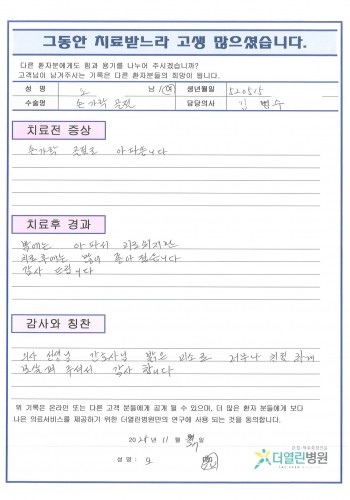 그동안 치료받느라 고생 많으셨습니다.
다른 환자분에게도 힘과 용기를 나누어 주시겠습니까?
고객님이 남겨주시는 기록은 다른 환자분들의 희망이 됩니다.
성 명 오 남 / 여 생년월일 520515
수술명 손가락 골절 담당의사 김 범수
치료전 증상
손가락 골절로 아파습니다
치료후 경과
아파서
치료후에는 많이 좋아 졌습니다
감사 드립니다
감사와 칭찬
의사 선생님 간호사님 밝은 미소로 너무나 친절 하게
보살펴 주셔서 감사 합니다
위 기록은 온라인 또는 다른 고객 분들에게 공개 될 수 있으며, 더 많은 환자 분들에게 보다
나은 의료서비스를 제공하기 위한 더열린병원만의 연구에 사용 되는 것을 동의합니다.
2025년 11월 일
성 명 : 오
더열린병원